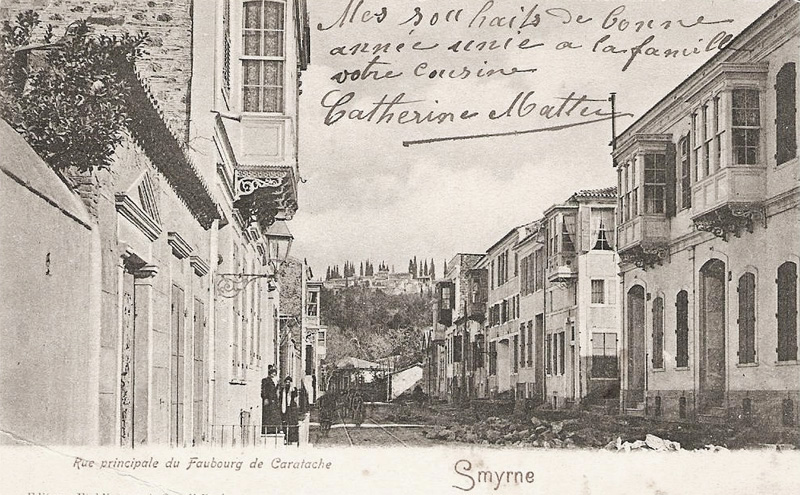 Mes souhaits de bonne
année unie a la famille
votre cousine
Catherine Matteu
Rue principale du Faubourg de Caratache
Smyrne